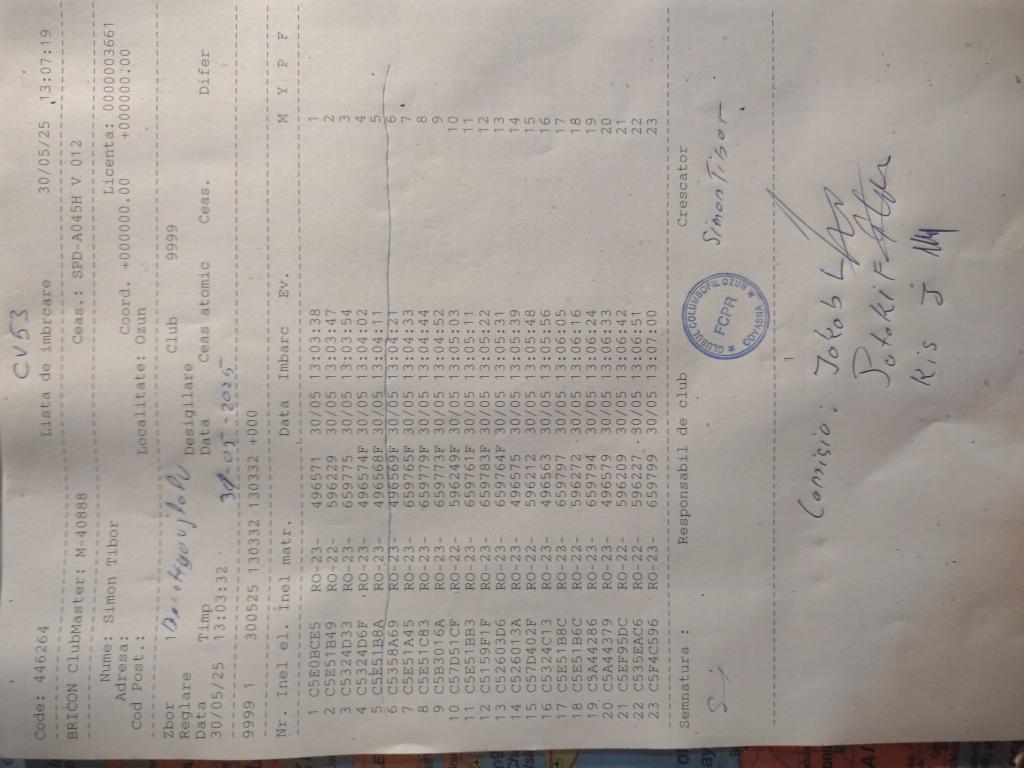 CV53
Code: 446264 Lista de imbrcare 30/05/25 13:07:19
BRICON ClubMaster: M-40888 Ceas.: SPD-A045H V 012
Nume: Simon Tibor Licenta: 0000003661
Adresa: Coord. +000000.00 +000000:00
Cod Post.: Localitate: Ozun
Zbor 1 Club 9999
Reglare Desigilare
Data Timp Data Ceas atomic Ceas. Difer
30/05/25 13:03:32 31-05-2025
9999 1 300525 130332 130332 +000
Nr. Inel el. Inel matr. Data Imbarc Ev. M Y P F
1 C5E0BCE5 RO-23- 496571 30/05 13:03:38 1
2 C5E51B49 RO-22- 596229 30/05 13:03:47 2
3 C5324D33 RO-23- 659775 30/05 13:03:54 3
4 C5324D6F RO-23- 496574F 30/05 13:04:02 4
5 C5E51B8A RO-23- 496568F 30/05 13:04:11 5
6 C5358A69 RO-23- 496569F 30/05 13:04:21 6
7 C5E51A45 RO-23- 659765F 30/05 13:04:33 7
8 C5E51C83 RO-23- 659779F 30/05 13:04:44 8
9 C5B3016A RO-23- 659773F 30/05 13:04:52 9
10 C57D51CF RO-22- 596249F 30/05 13:05:03 10
11 C5E51BB3 RO-23- 659761F 30/05 13:05:11 11
12 C5159F1F RO-23- 659783F 30/05 13:05:22 12
13 C52603D6 RO-23- 659764F 30/05 13:05:31 13
14 C526013A RO-23- 496575 30/05 13:05:39 14
15 C57D402F RO-22- 596212 30/05 13:05:48 15
16 C5324C13 RO-23- 496563 30/05 13:05:56 16
17 C5E51B8C RO-23- 659797 30/05 13:06:05 17
18 C5E51B6C RO-22- 596272 30/05 13:06:16 18
19 C5A44286 RO-23- 659794 30/05 13:06:24 19
20 C5A44379 RO-23- 496579 30/05 13:06:33 20
21 C5EF95DC RO-22- 596209 30/05 13:06:42 21
22 C535EAC6 RO-22- 596227 30/05 13:06:51 22
23 C5F4C596 RO-23- 659799 30/05 13:07:00 23
Semnatura : Responsabil de club Crescator
Simon Tibor
CLUBUL COLUMBOFIL OZUN
FCPR
COVASNA
1
Comisio: Jakob
Pataki F
Kis J